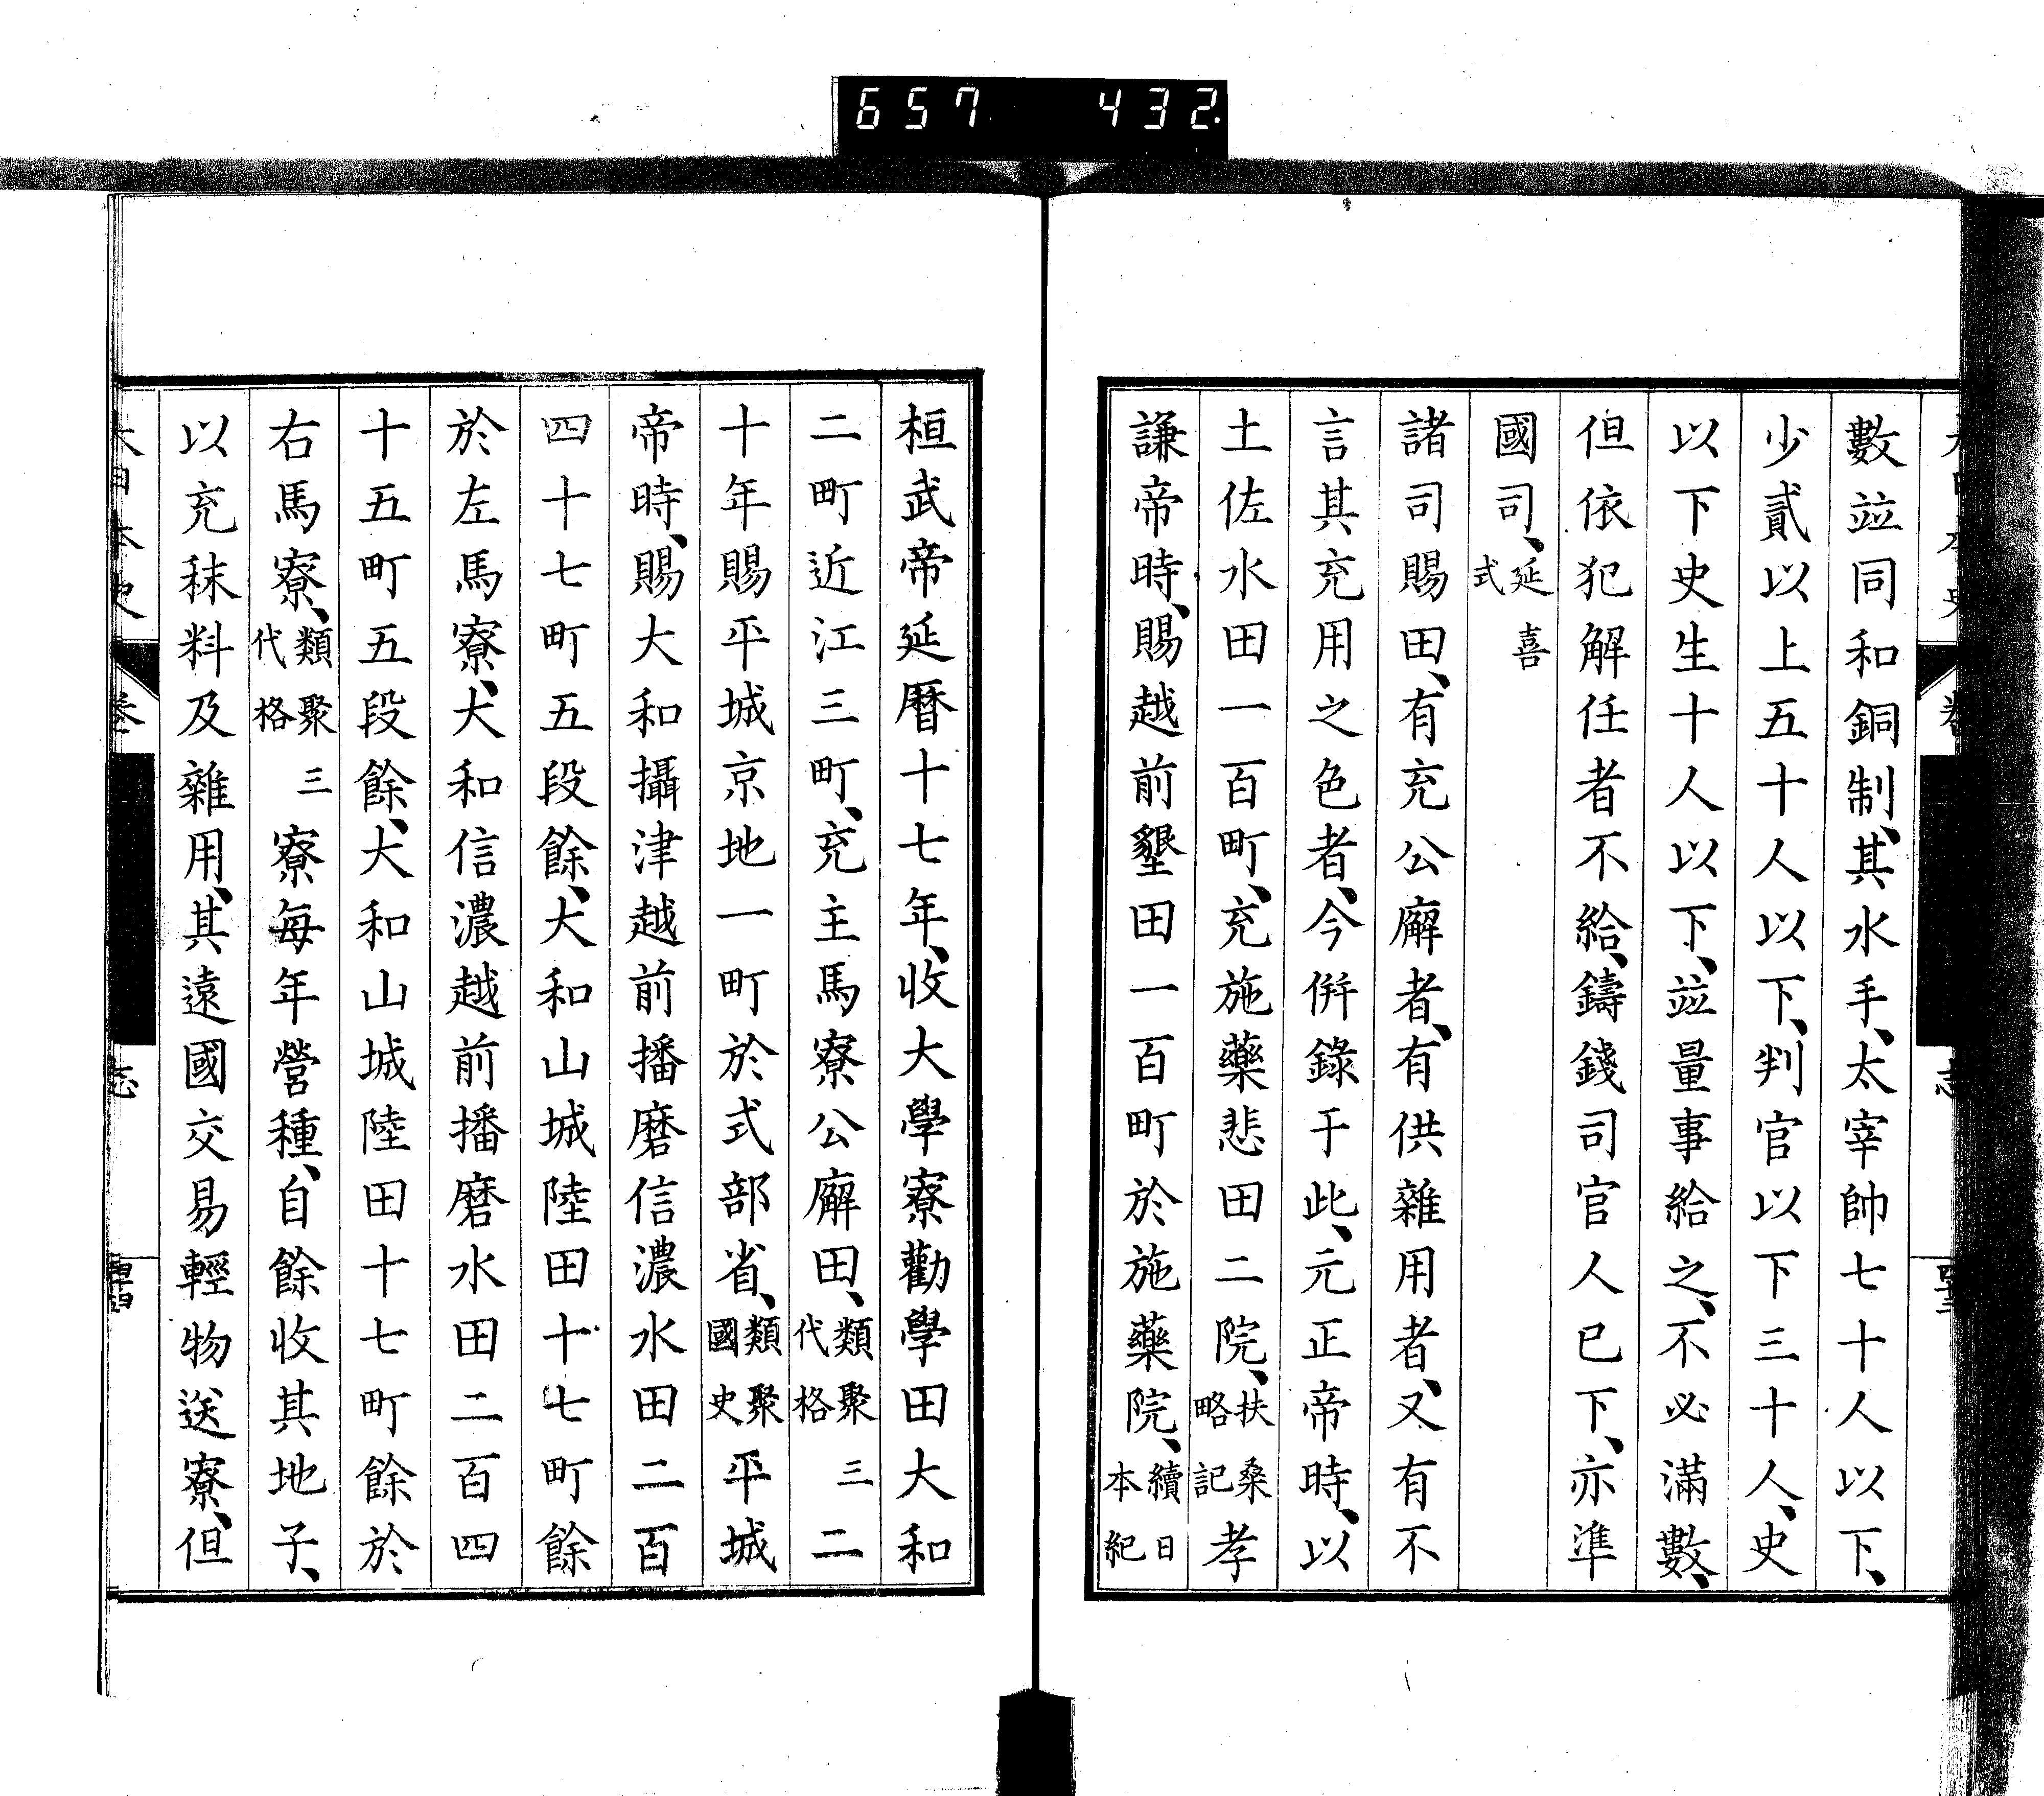 657 432
數竝同和銅制、其水手、太宰帥七十人以下、
少貳以上五十人以下、判官以下三十人、史
以下史生十人以下、竝量事給之、不必滿數、
但依犯解任者不給、鑄錢司官人已下、亦準
國司、延喜式
諸司賜田、有充公廨者、有供雜用者、又有不
言其充用之色者、今倂錄于此、元正帝時、以
土佐水田一百町、充施藥悲田二院、扶桑略記孝
謙帝時、賜越前墾田一百町於施藥院、續日本紀
桓武帝延曆十七年、收大學寮勸學田大和
二町近江三町、充主馬寮公廨田、類聚三代格二
十年賜平城京地一町於式部省、類聚國史平城
帝時、賜大和攝津越前播磨信濃水田二百
四十七町五段餘、大和山城陸田十七町餘
於左馬寮、大和信濃越前播磨水田二百四
十五町五段餘、大和山城陸田十七町餘於
右馬寮、類聚三代格寮每年營種、自餘收其地子、
以充秣料及雜用、其遠國交易輕物送寮、但
大日本史
卷
志